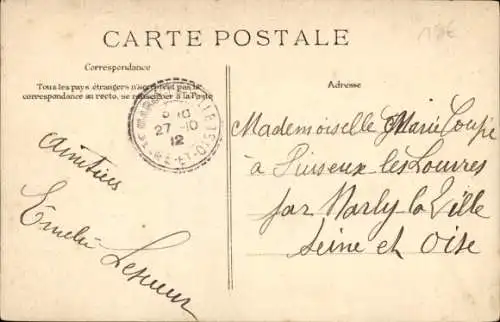 CARTE POSTALE
Correspondance
Tous les pays étrangers n'acceptent pas la
correspondance au recto, se renseigner à la Poste
Adresse
27-10
12
SEINE-ET-OISE
amitiés
Emélie Lesueur
Mademoiselle Marie Coupé
à Puiseux les Louvres
par Marly la Ville
Seine et Oise